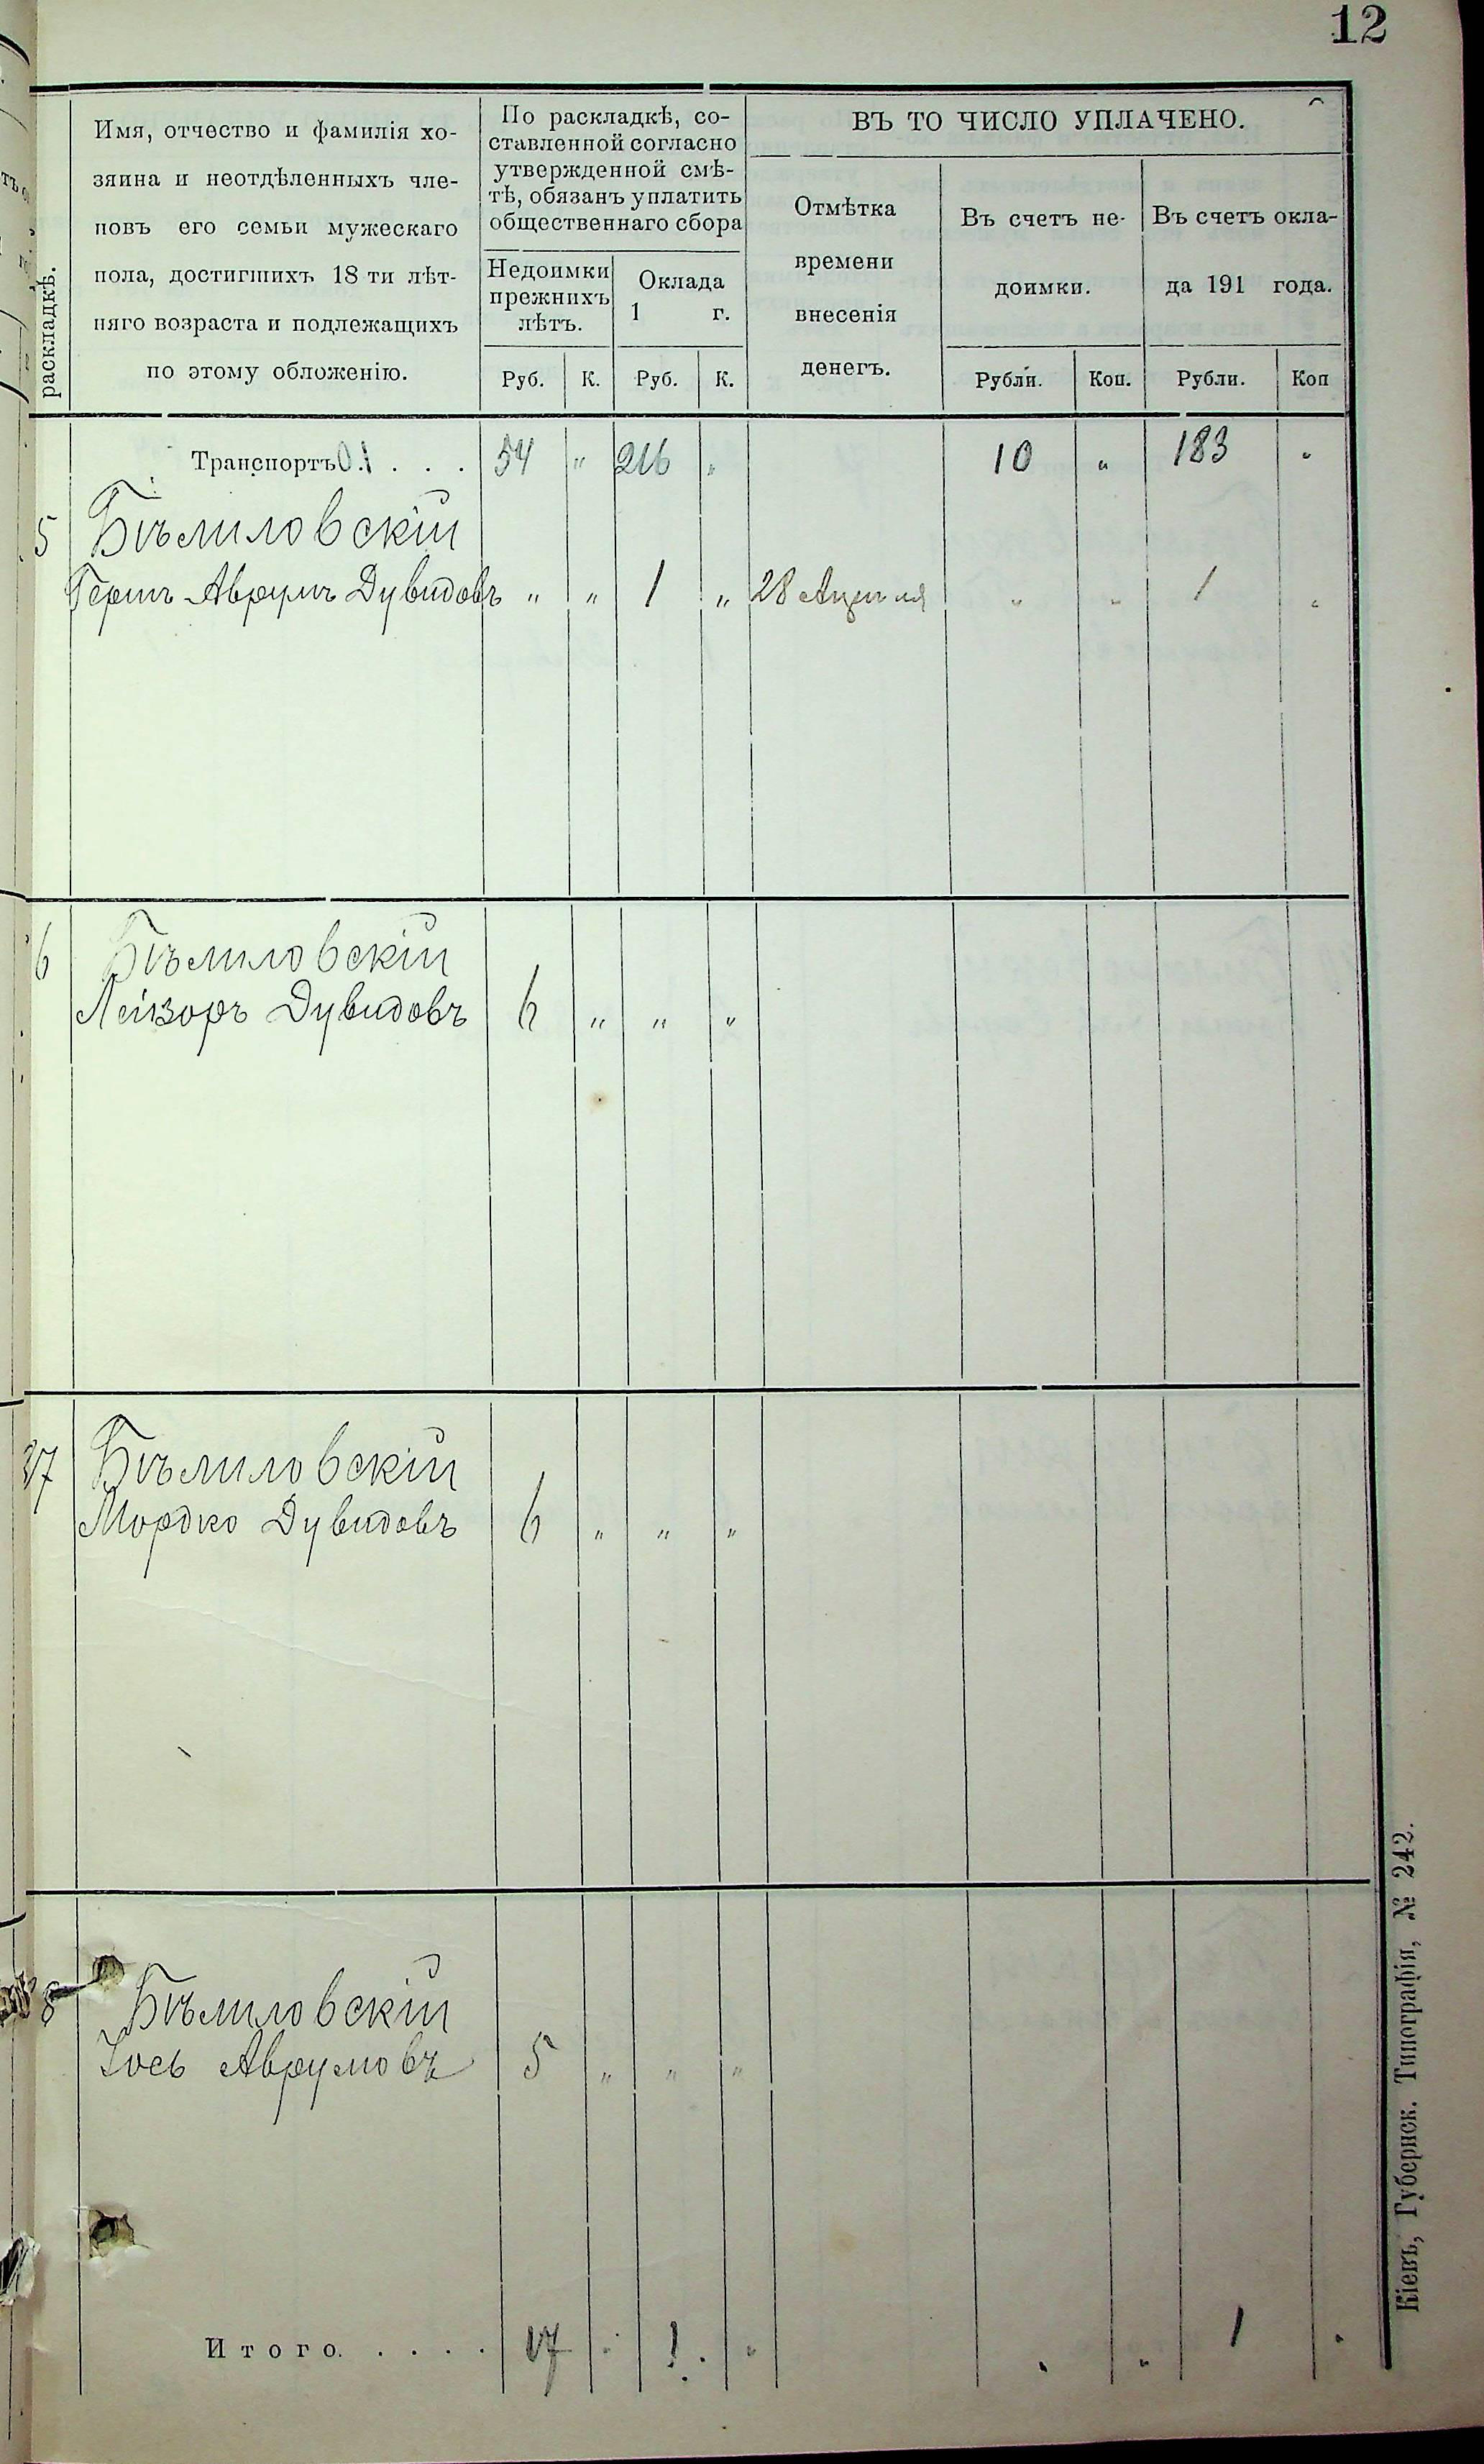 12
раскладкѣ.
Имя, отчество и фамилія хо-
зяина и неотдѣленныхъ чле-
новъ его семьи мужескаго
пола, достигшихъ 18 ти лѣт-
няго возраста и подлежащихъ
по этому обложенію.
По раскладкѣ, со-
ставленной согласно
утвержденной смѣ-
тѣ, обязанъ уплатить
общественнаго сбора
Недоимки
прежнихъ
лѣтъ.
Оклада
1 г.
Руб. К. Руб. К.
ВЪ ТО ЧИСЛО УПЛАЧЕНО.
Отмѣтка
времени
внесенія
денегъ.
Въ счетъ не-
доимки.
Рубли. Коп.
Въ счетъ окла-
да 191 года.
Рубли. Коп
Транспортъ . . . 54 " 216 " 10 " 183 "
5 Бѣлиловскій
Гершъ Аврумъ Дувидовъ " " 1 " 28 Апрѣля " " 1 "
6 Бѣлиловскій
Лейзоръ Дувидовъ 6 " " "
37 Бѣлиловскій
Мордко Дувидовъ 6 " " "
8 Бѣлиловскій
Іось Аврумовъ 5 " " "
Итого. . . . . 17 " 1 " " " 1 "
Кіевъ, Губернск. Типографія, № 242.